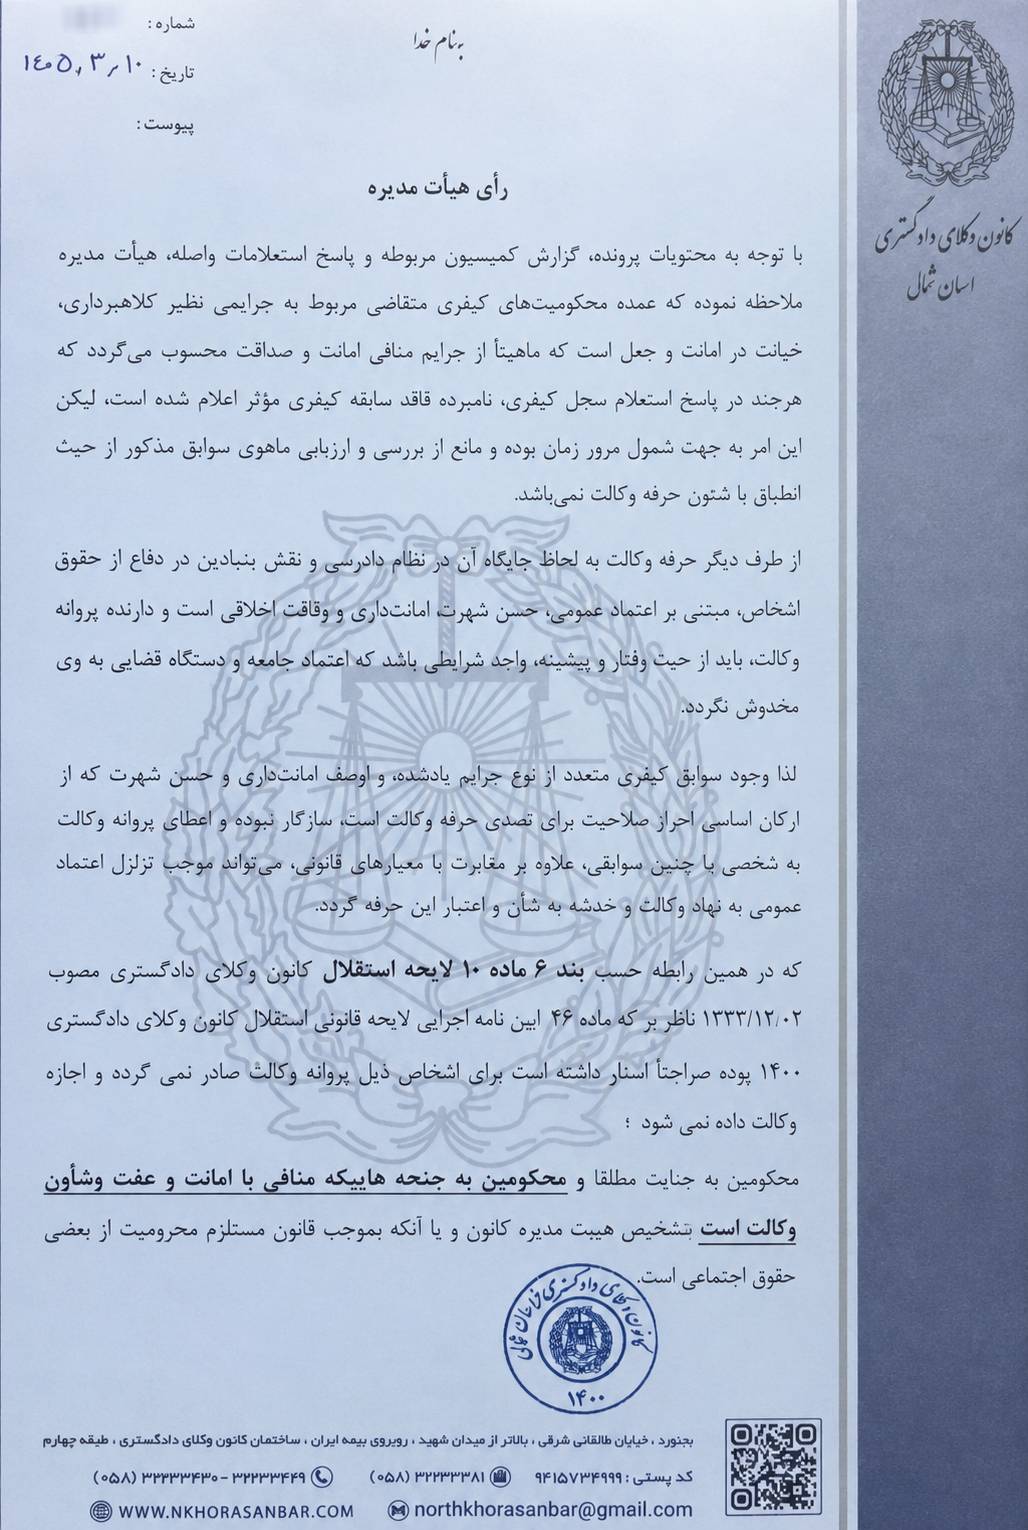 به‌نام خدا
شماره :
تاریخ : ۱۴۰۵٫۳٫۱۰
پیوست :
کانون وکلای دادگستری
اسان شمال
رأی هیأت مدیره
با توجه به محتویات پرونده، گزارش کمیسیون مربوطه و پاسخ استعلامات واصله، هیأت مدیره
ملاحظه نموده که عمده محکومیت‌های کیفری متقاضی مربوط به جرایمی نظیر کلاهبرداری،
خیانت در امانت و جعل است که ماهیتأ از جرایم منافی امانت و صداقت محسوب می‌گردد که
هرجند در پاسخ استعلام سجل کیفری، نامبرده قاقد سابقه کیفری مؤثر اعلام شده است، لیکن
این امر به جهت شمول مرور زمان بوده و مانع از بررسی و ارزبابی ماهوی سوابق مذکور از حیث
انطباق با شئون حرفه وکالت نمی‌باشد.
از طرف دیگر حرفه وکالت به لحاظ جایگاه آن در نظام دادرسی و نقش بنبادین در دفاع از حقوق
اشخاص، مبتنی بر اعتماد عمومی، حسن شهرت، امانت‌داری و وقاقت اخلاقی است و دارنده پروانه
وکالت، باید از حیت وفتار و پیشینه، واجد شرایطی باشد که اعتماد جامعه و دستگاه قضایی به وی
مخدوش نگردد.
لذا وجود سوابق کیفری متعدد از نوع جرایم یادشده، و اوصف امانت‌داری و حسن شهرت که از
ارکان اساسی احراز صلاحیت برای تصدی حرفه وکالت است، سازگار نبوده و اعطای پروانه وکالت
به شخصی با چنین سوابقی، علاوه بر مغابرت با معیارهای قانونی، می‌تواند موجب تزلزل اعتماد
عمومی به نهاد وکالت و خدشه به شأن و اعتبار این حرفه گردد.
که در همین رابطه حسب بند ۶ ماده ۱۰ لایحه استقلال کانون وکلای دادگستری مصوب
۱۳۳۳/۱۲/۰۲ ناظر بر که ماده ۴۶ ایین نامه اجرایی لایحه قانونی استقلال کانون وکلای دادگستری
۱۴۰۰ پوده صراجتأ اسنار داشته است برای اشخاص ذیل پروانه وکالت صادر نمی گرده و اجازه
وکالت داده نمی شود ؛
محکومین به جنایت مطلقا و محکومین به جنحه هاییکه منافی با امانت و عفت وشأون
وکالت است بتشخیص هیبت مدیره کانون و یا آنکه بموجب قانون مستلزم محرومیت از بعضی
حقوق اجتماعی است.
۱۴۰۰
بجنورد ، خیابان طالقانی شرقی ، بالاتر از میدان شهید ، روبروی بیمه ایران ، ساختمان کانون وکلای دادگستری ، طبقه چهارم
کد پستی : ۹۴۱۵۷۳۴۹۹۹ (۰۵۸) ۳۲۲۳۳۳۸۱ (۰۵۸) ۳۲۲۳۳۴۳۰ - ۳۲۲۳۳۴۴۹
WWW.NKHORASANBAR.COM northkhorasanbar@gmail.com